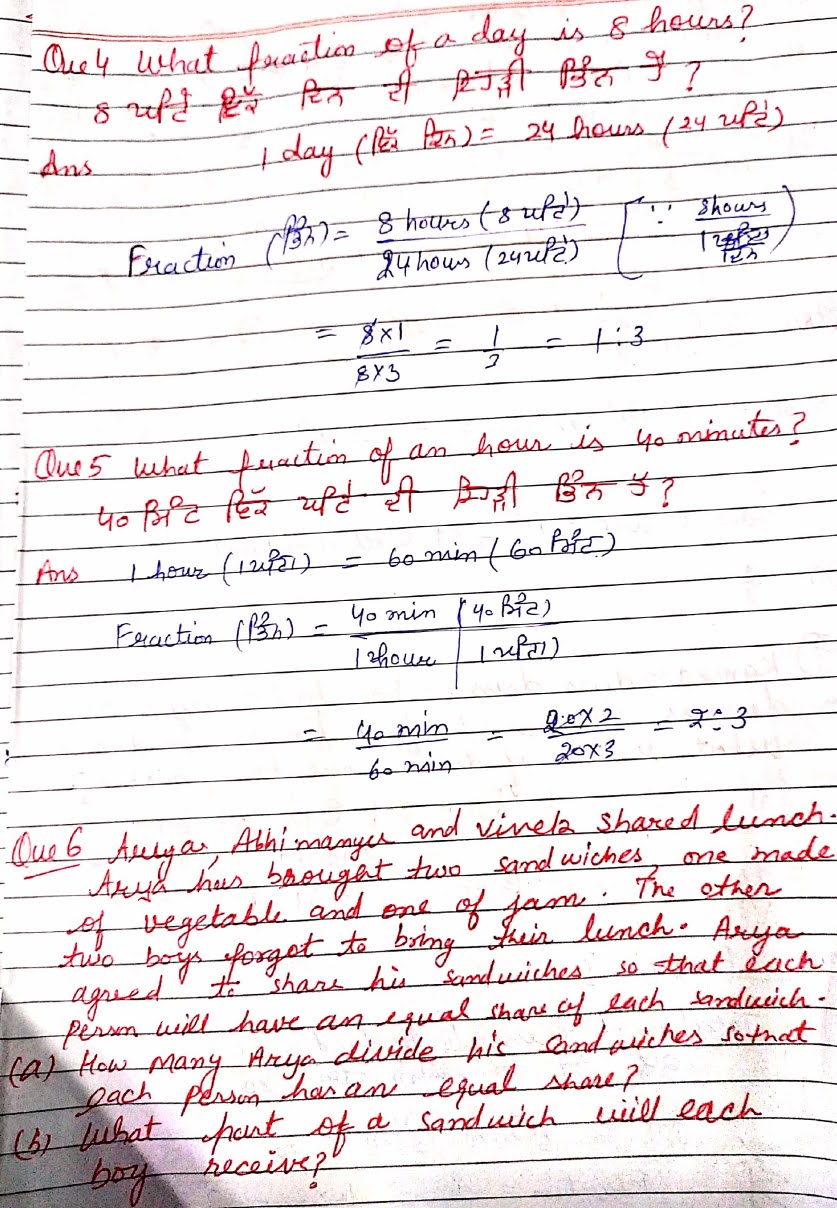 Que 4 What fraction of a day is 8 hours?
8 ਘੰਟੇ ਇੱਕ ਦਿਨ ਦੀ ਕਿਹੜੀ ਭਿੰਨ ਹੈ ?
Ans 1 day (ਇੱਕ ਦਿਨ) = 24 hours (24 ਘੰਟੇ)
Fraction (ਭਿੰਨ) = 8 hours (8 ਘੰਟੇ) / 24 hours (24 ਘੰਟੇ) [∵ 8 hours / 1 ਦਿਨ)
= 8×1 / 8×3 = 1/3 = 1:3
Que 5 What fraction of an hour is 40 minutes?
40 ਮਿੰਟ ਇੱਕ ਘੰਟੇ ਦੀ ਕਿਹੜੀ ਭਿੰਨ ਹੈ ?
Ans 1 hour (1 ਘੰਟਾ) = 60 min (60 ਮਿੰਟ)
Fraction (ਭਿੰਨ) = 40 min (40 ਮਿੰਟ) / 1 hour 1 ਘੰਟਾ)
= 40 min / 60 min = 20×2 / 20×3 = 2:3
Que 6 Arya, Abhimanyu and Vivek shared lunch.
Arya has brought two sandwiches, one made
of vegetable and one of jam. The other
two boys forgot to bring their lunch. Arya
agreed to share his sandwiches so that each
person will have an equal share of each sandwich.
(a) How many Arya divide his sandwiches so that
each person has an equal share?
(b) What part of a sandwich will each
boy receive?